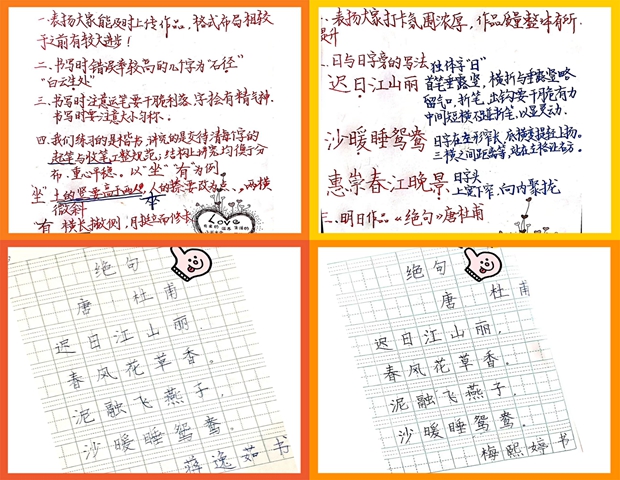 一.表扬大家能及时上传作品,格式布局相较
于之前有较大进步!
二.书写时错误率较高的几个字为"石径"
"白云生处"
三.书写时注意运笔要干脆利落,字才会有精气神.
书写时要注意大小匀称.
四.我们练习的是楷书,讲究的是交待清每个字的
起笔与收笔,工整规范,结构上讲究均衡于分
布,重心平稳。以"坐""有"为例.
坐"土的竖要高于两人,人的捺要改为点、两横
微斜
"有"横长撇侧,月挺立而修长
Love
一.表扬大家打卡氛围浓厚,作品质量整体有所
提升
二.日与日字旁的写法 独体字"日"
迟日江山丽 首笔垂露竖,横折与垂露竖略
留气口,折笔、出钩要干脆有力
中间短横及提新笔,以显灵动.
沙暖睡鸳鸯 日字在左形窄长,底横变提往上扬。
三横之间距离等,站在左格让右方.
惠崇春江晚景 日字头
上宽下窄,向内聚拢
三.明日作品《绝句》唐杜甫
绝句
唐 杜甫
迟日江山丽,
春风花草香。
泥融飞燕子,
沙暖睡鸳鸯。
蒋逸茹书
绝句
唐 杜甫
迟日江山丽,
春风花草香。
泥融飞燕子,
沙暖睡鸳鸯。
梅熙婷书